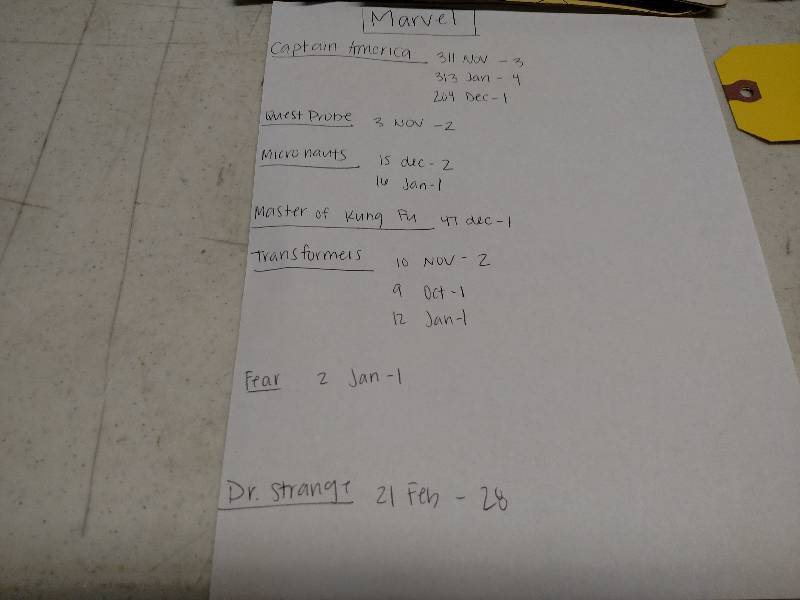 Marvel
Captain America 311 Nov - 3
313 Jan - 4
264 Dec - 1
Quest Probe 3 NOV - 2
Micronauts 15 dec - 2
16 Jan - 1
Master of Kung Fu 47 dec - 1
Transformers 10 NOV - 2
9 Oct - 1
12 Jan - 1
Fear 2 Jan - 1
Dr. Strange 21 Feb - 28